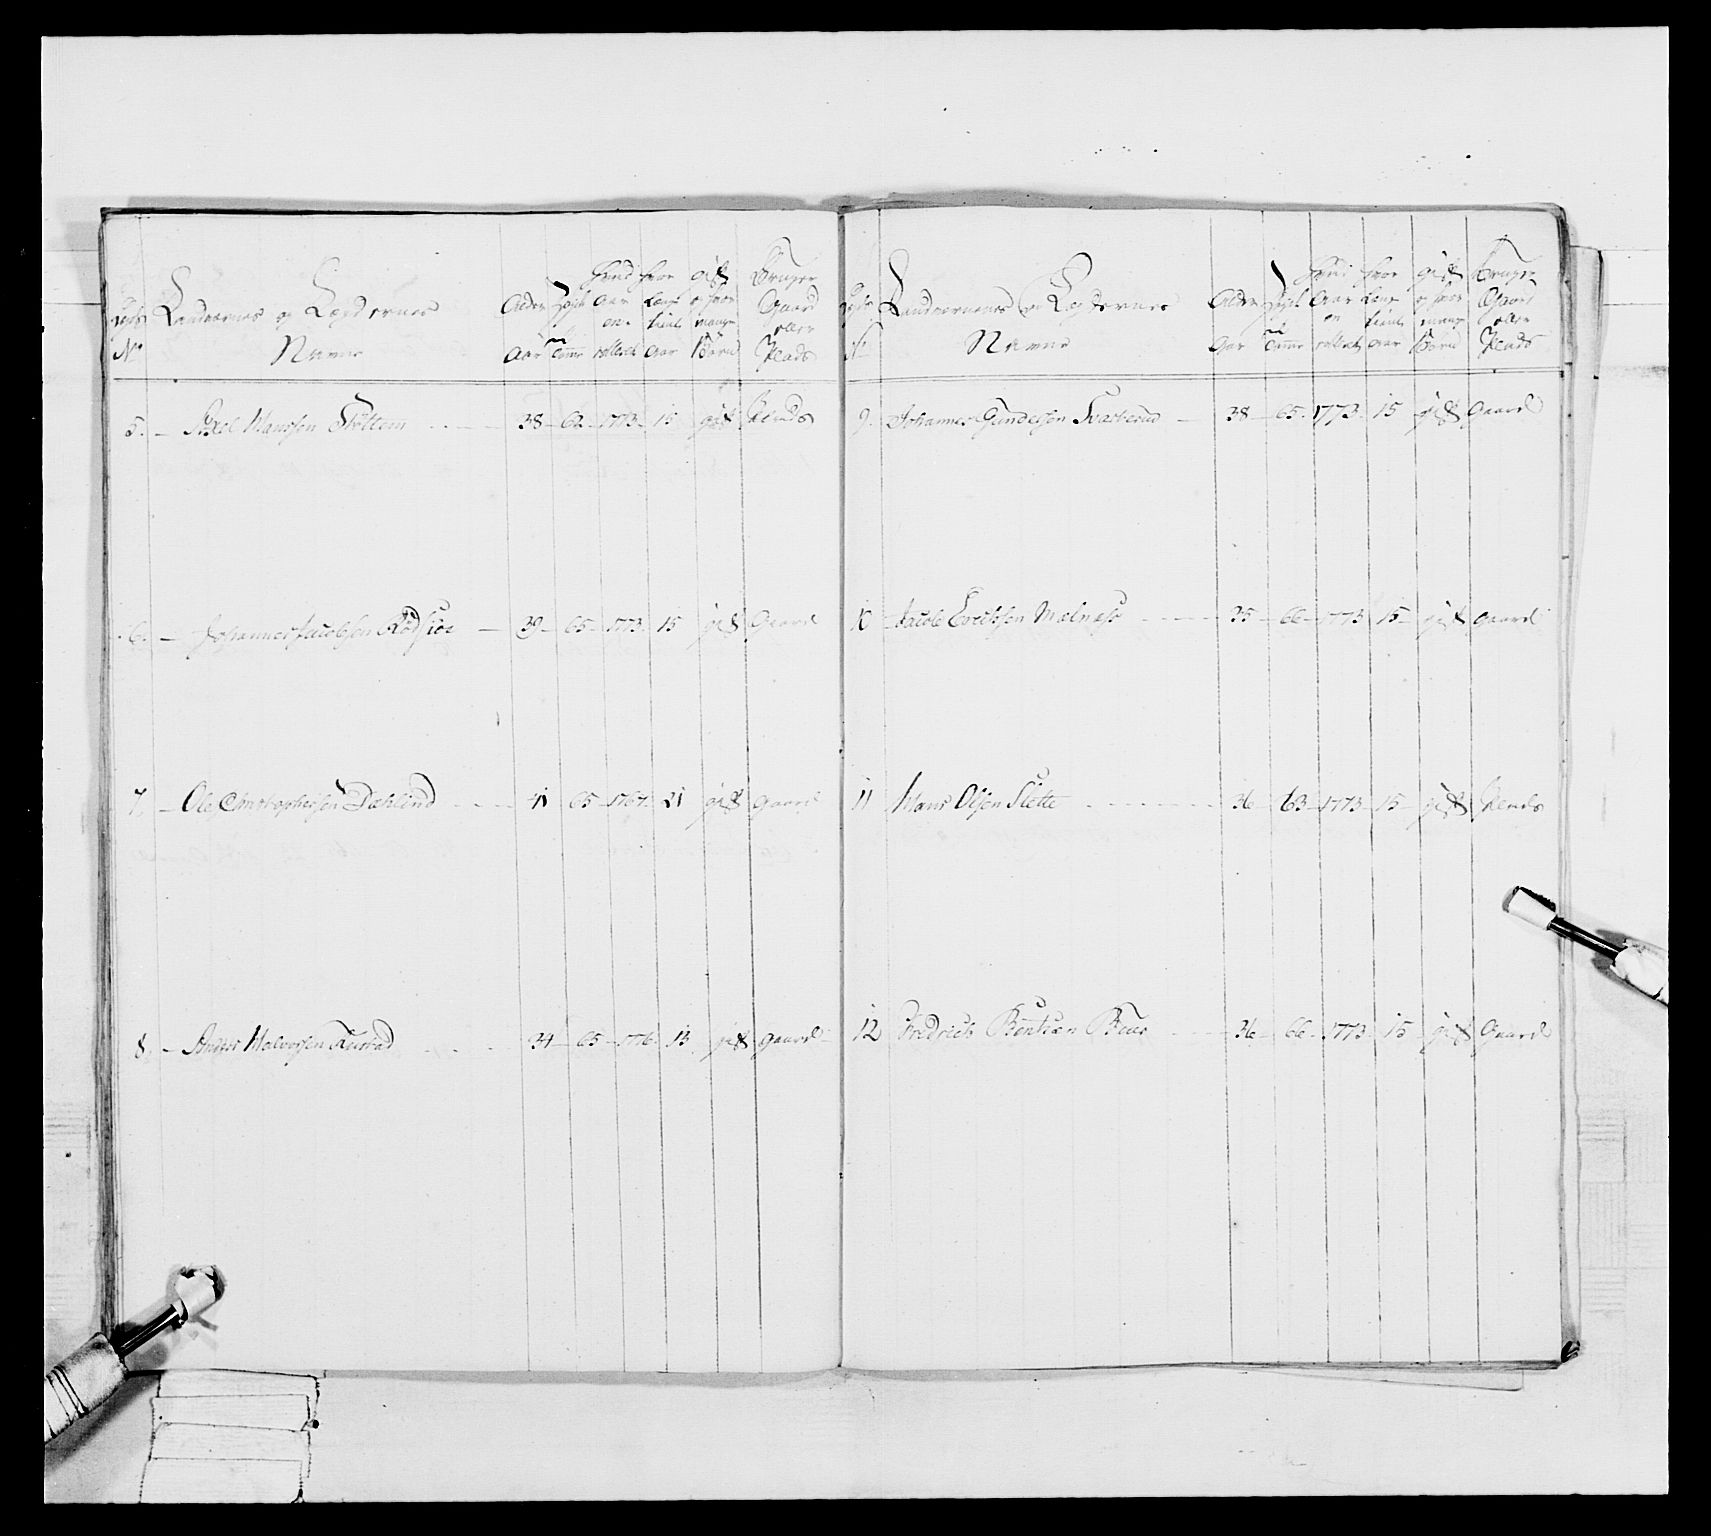 Landværnes og Lægdernes
Navne
Alder Aar
Høyde Tomer
hvad Aar en- rolleret
hvor lenge tient Aar
gift og hvor mange Børn
Bruger Gaard eller Plads
5. Axel Hansen Stöttem 38 62 1773 15 gift Plads
6. Johannes Jacobsen 39 65 1773 15 gift Gaard
7. Ole Christophersen Dæhlind 41 65 1767 21 gift gaard
8. Anders Halvorsen 34 65 1776 13 gift gaard
Landværnenes og Lægdernes
Navne
Alder Aar
Tomer
hvad Aar en rolleret
hvor lenge tient Aar
gift og hvor mange Børn
Bruger Gaard eller Plads
9. Johannes Gundersen Svarterud 38 65 1773 15 gift gaard
10 Jacob Erichsen Melnæss 35 66 1773 15 gift gaard
11 Hans Olsen Slette 36 63 1773 15 gift Plads
12 Fredrich 36 66 1773 15 gift Gaard